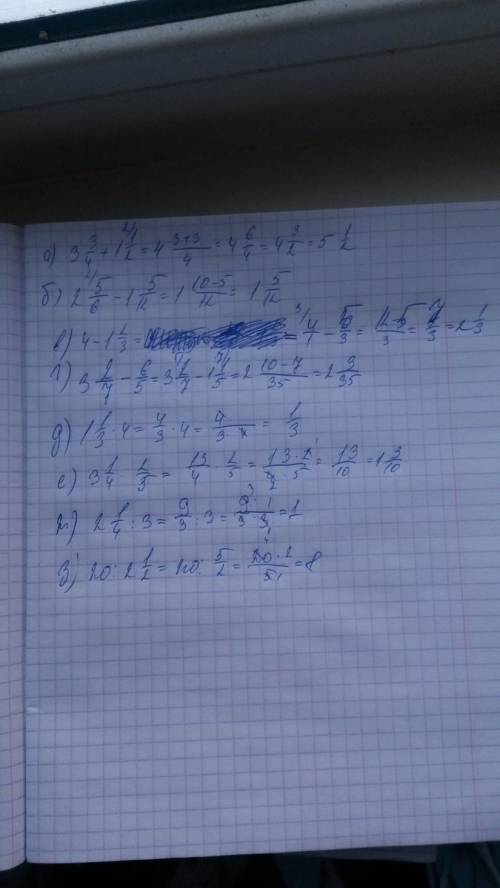 а) 3 3/4 + 1 1/2 = 4 3+3/4 = 4 6/4 = 4 3/2 = 5 1/2
б) 2 5/6 - 1 5/12 = 1 10-5/12 = 1 5/12
в) 4 - 1 2/3 = 4/1 - 5/3 = 12-5/3 = 7/3 = 2 1/3
г) 3 2/7 - 6/5 = 3 2/7 - 1 1/5 = 2 10-7/35 = 2 3/35
д) 1 1/3 · 4 = 4/3 · 4 = 4/3·4 = 1/3
е) 3 1/4 · 2/5 = 13/4 · 2/5 = 13·2/4·5 = 13/10 = 1 3/10
ж) 2 1/4 : 3 = 9/3 : 3 = 9·1/3·3 = 1
з) 20 : 2 1/2 = 20 : 5/2 = 20·2/5 = 8